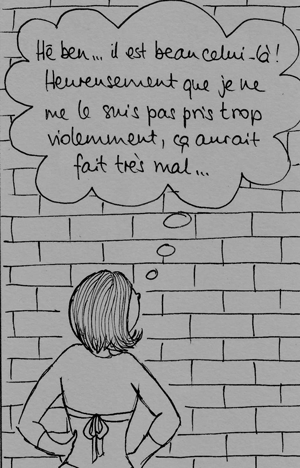 Hé ben... il est beau celui-là !
Heureusement que je ne
me le suis pas pris trop
violemment, ça aurait
fait très mal...